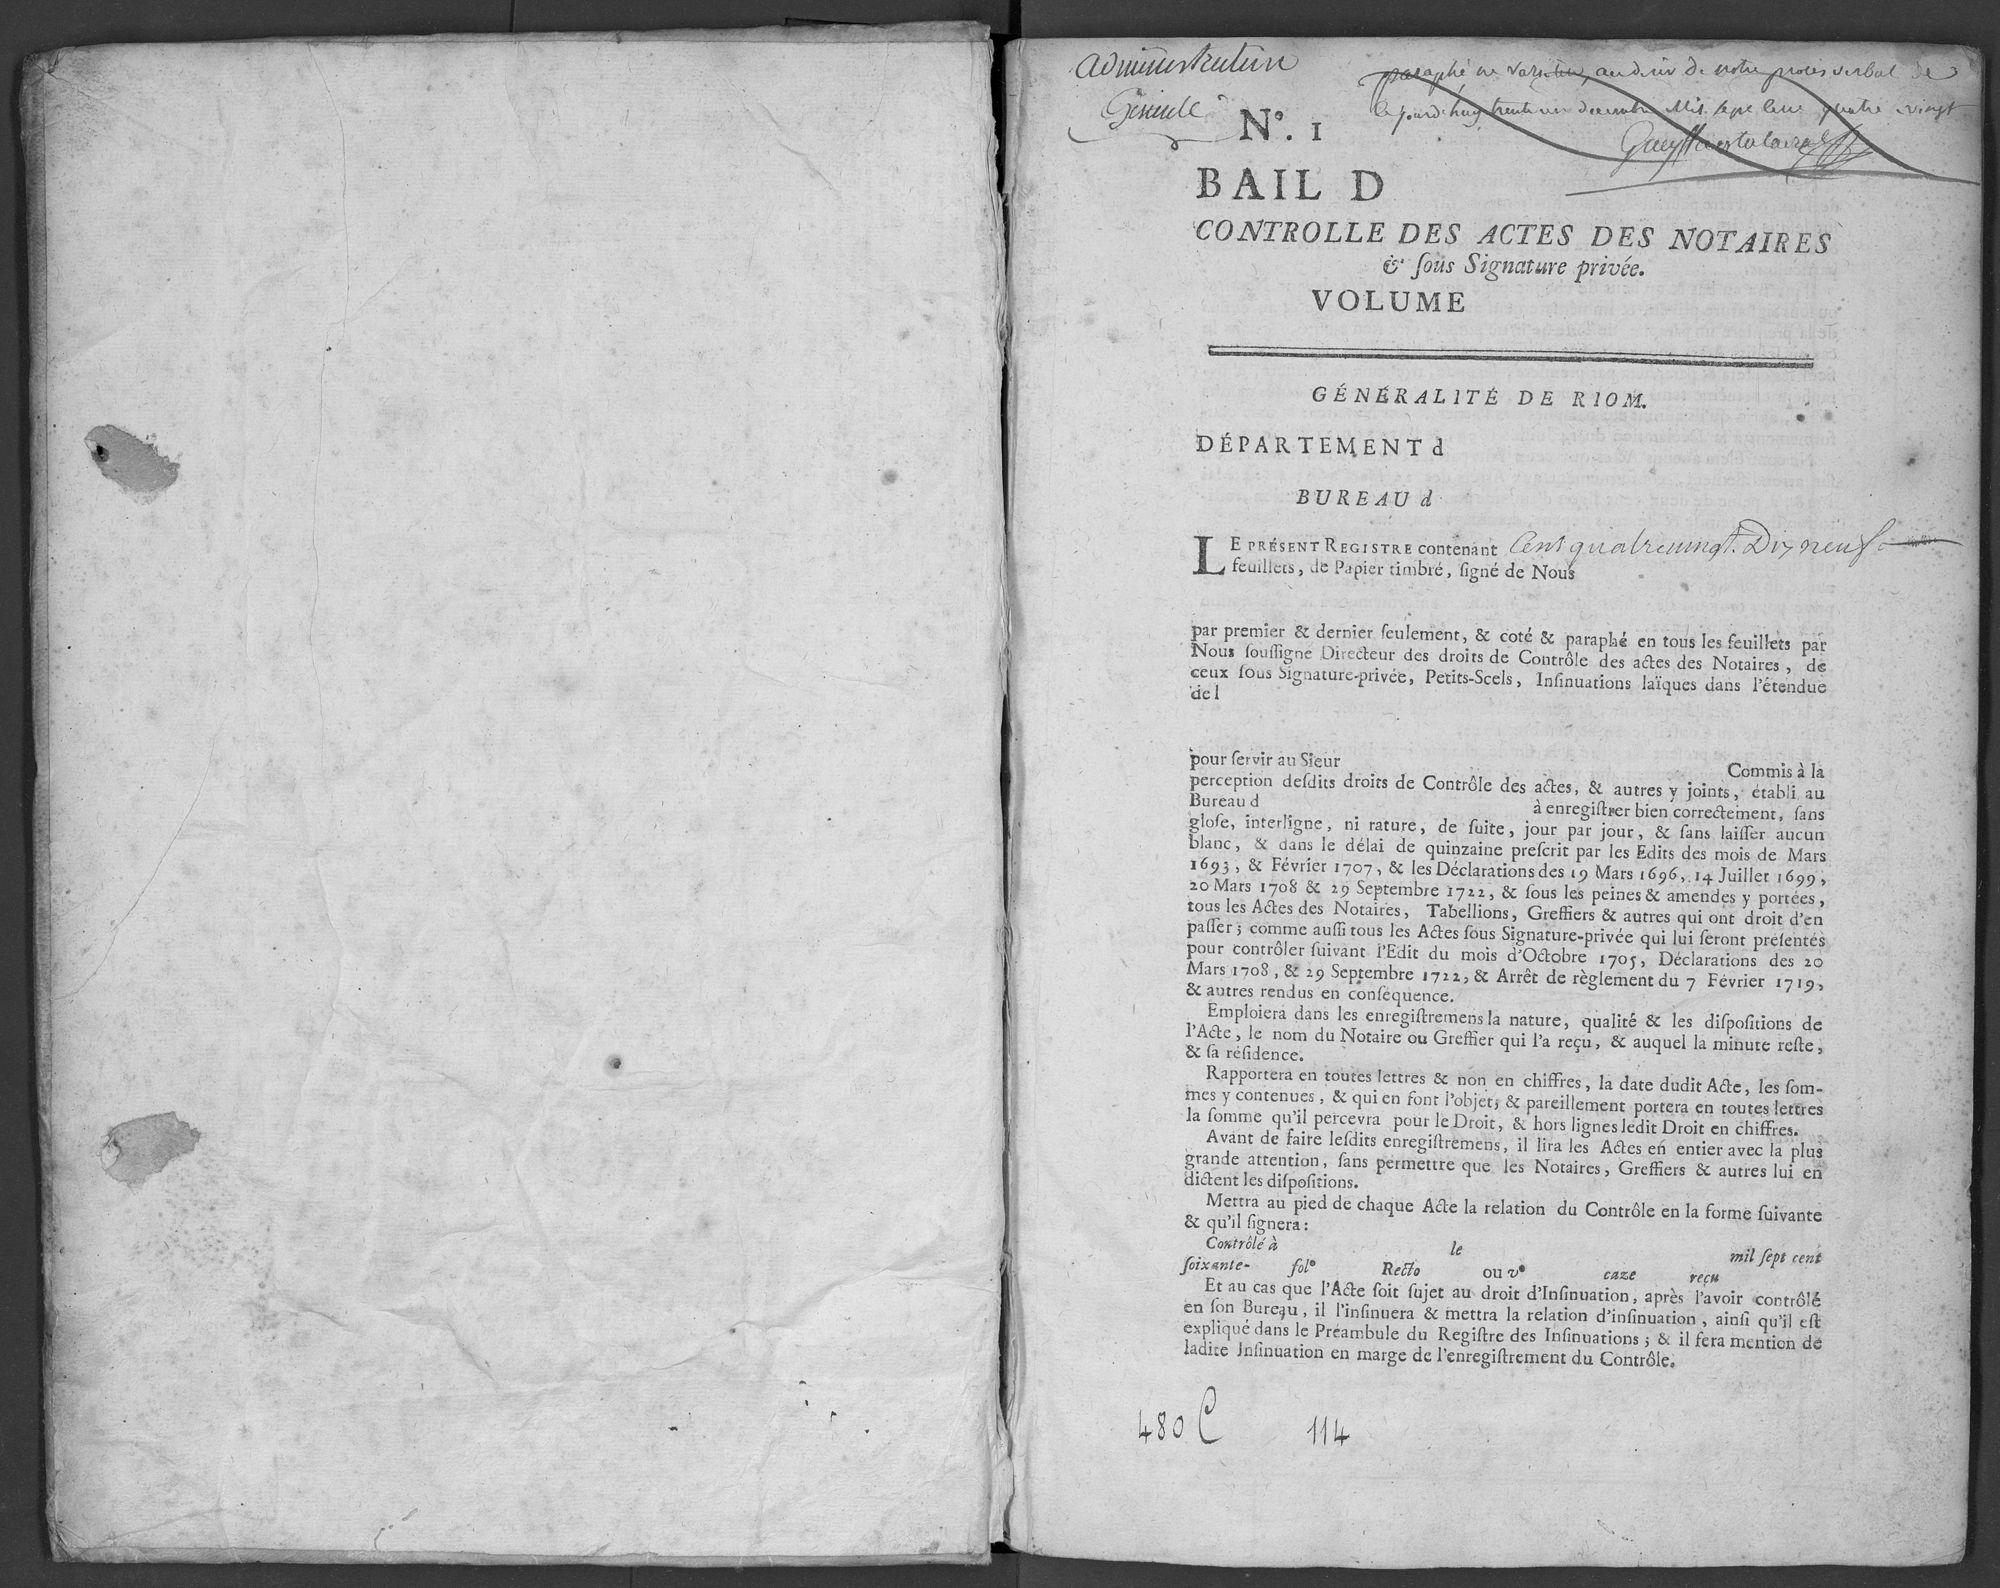 administration
Génerale
paraphé ne varietur, au desir de notre proces verbal de
ce jourd'huy trente un decembre Mil sept cent quatre vingt
N°. 1
BAIL D
CONTROLLE DES ACTES DES NOTAIRES
& ſous Signature privée.
VOLUME
GÉNÉRALITÉ DE RIOM.
DÉPARTEMENT d
BUREAU d
LE PRÉSENT REGISTRE contenant Cent quatrevingt. Dix neuf
feuillets, de Papier timbré, ſigné de Nous
par premier & dernier ſeulement, & coté & paraphé en tous les feuillets par
Nous ſouſſigne Directeur des droits de Contrôle des actes des Notaires, de
ceux ſous Signature-privée, Petits-Scels, Inſinuations laïques dans l'étendue
de l
pour ſervir au Sieur Commis à la
perception deſdits droits de Contrôle des actes, & autres y joints, établi au
Bureau d à enregiſtrer bien correctement, ſans
gloſe, interligne, ni rature, de ſuite, jour par jour, & ſans laiſſer aucun
blanc, & dans le délai de quinzaine preſcrit par les Edits des mois de Mars
1693, & Février 1707, & les Déclarations des 19 Mars 1696, 14 Juillet 1699,
20 Mars 1708 & 29 Septembre 1722, & ſous les peines & amendes y portées,
tous les Actes des Notaires, Tabellions, Greffiers & autres qui ont droit d'en
paſſer; comme auſſi tous les Actes ſous Signature-privée qui lui ſeront préſentés
pour contrôler ſuivant l'Edit du mois d'Octobre 1705, Déclarations des 20
Mars 1708, & 29 Septembre 1722, & Arrêt de règlement du 7 Février 1719,
& autres rendus en conſéquence.
Emploiera dans les enregiſtremens la nature, qualité & les diſpoſitions de
l'Acte, le nom du Notaire ou Greffier qui l'a reçu, & auquel la minute reſte,
& ſa réſidence.
Rapportera en toutes lettres & non en chiffres, la date dudit Acte, les ſom-
mes y contenues, & qui en font l'objet, & pareillement portera en toutes lettres
la ſomme qu'il percevra pour le Droit, & hors lignes ledit Droit en chiffres.
Avant de faire leſdits enregiſtremens, il lira les Actes en entier avec la plus
grande attention, ſans permettre que les Notaires, Greffiers & autres lui en
dictent les diſpoſitions.
Mettra au pied de chaque Acte la relation du Contrôle en la forme ſuivante
& qu'il ſignera:
Contrôlé à le mil ſept cent
ſoixante- fol° Recto ou v° caze reçu
Et au cas que l'Acte ſoit ſujet au droit d'Inſinuation, après l'avoir contrôlé
en ſon Bureau, il l'inſinuera & mettra la relation d'inſinuation, ainſi qu'il eſt
expliqué dans le Préambule du Regiſtre des Inſinuations; & il fera mention de
ladite Inſinuation en marge de l'enregiſtrement du Contrôle.
480 C 114